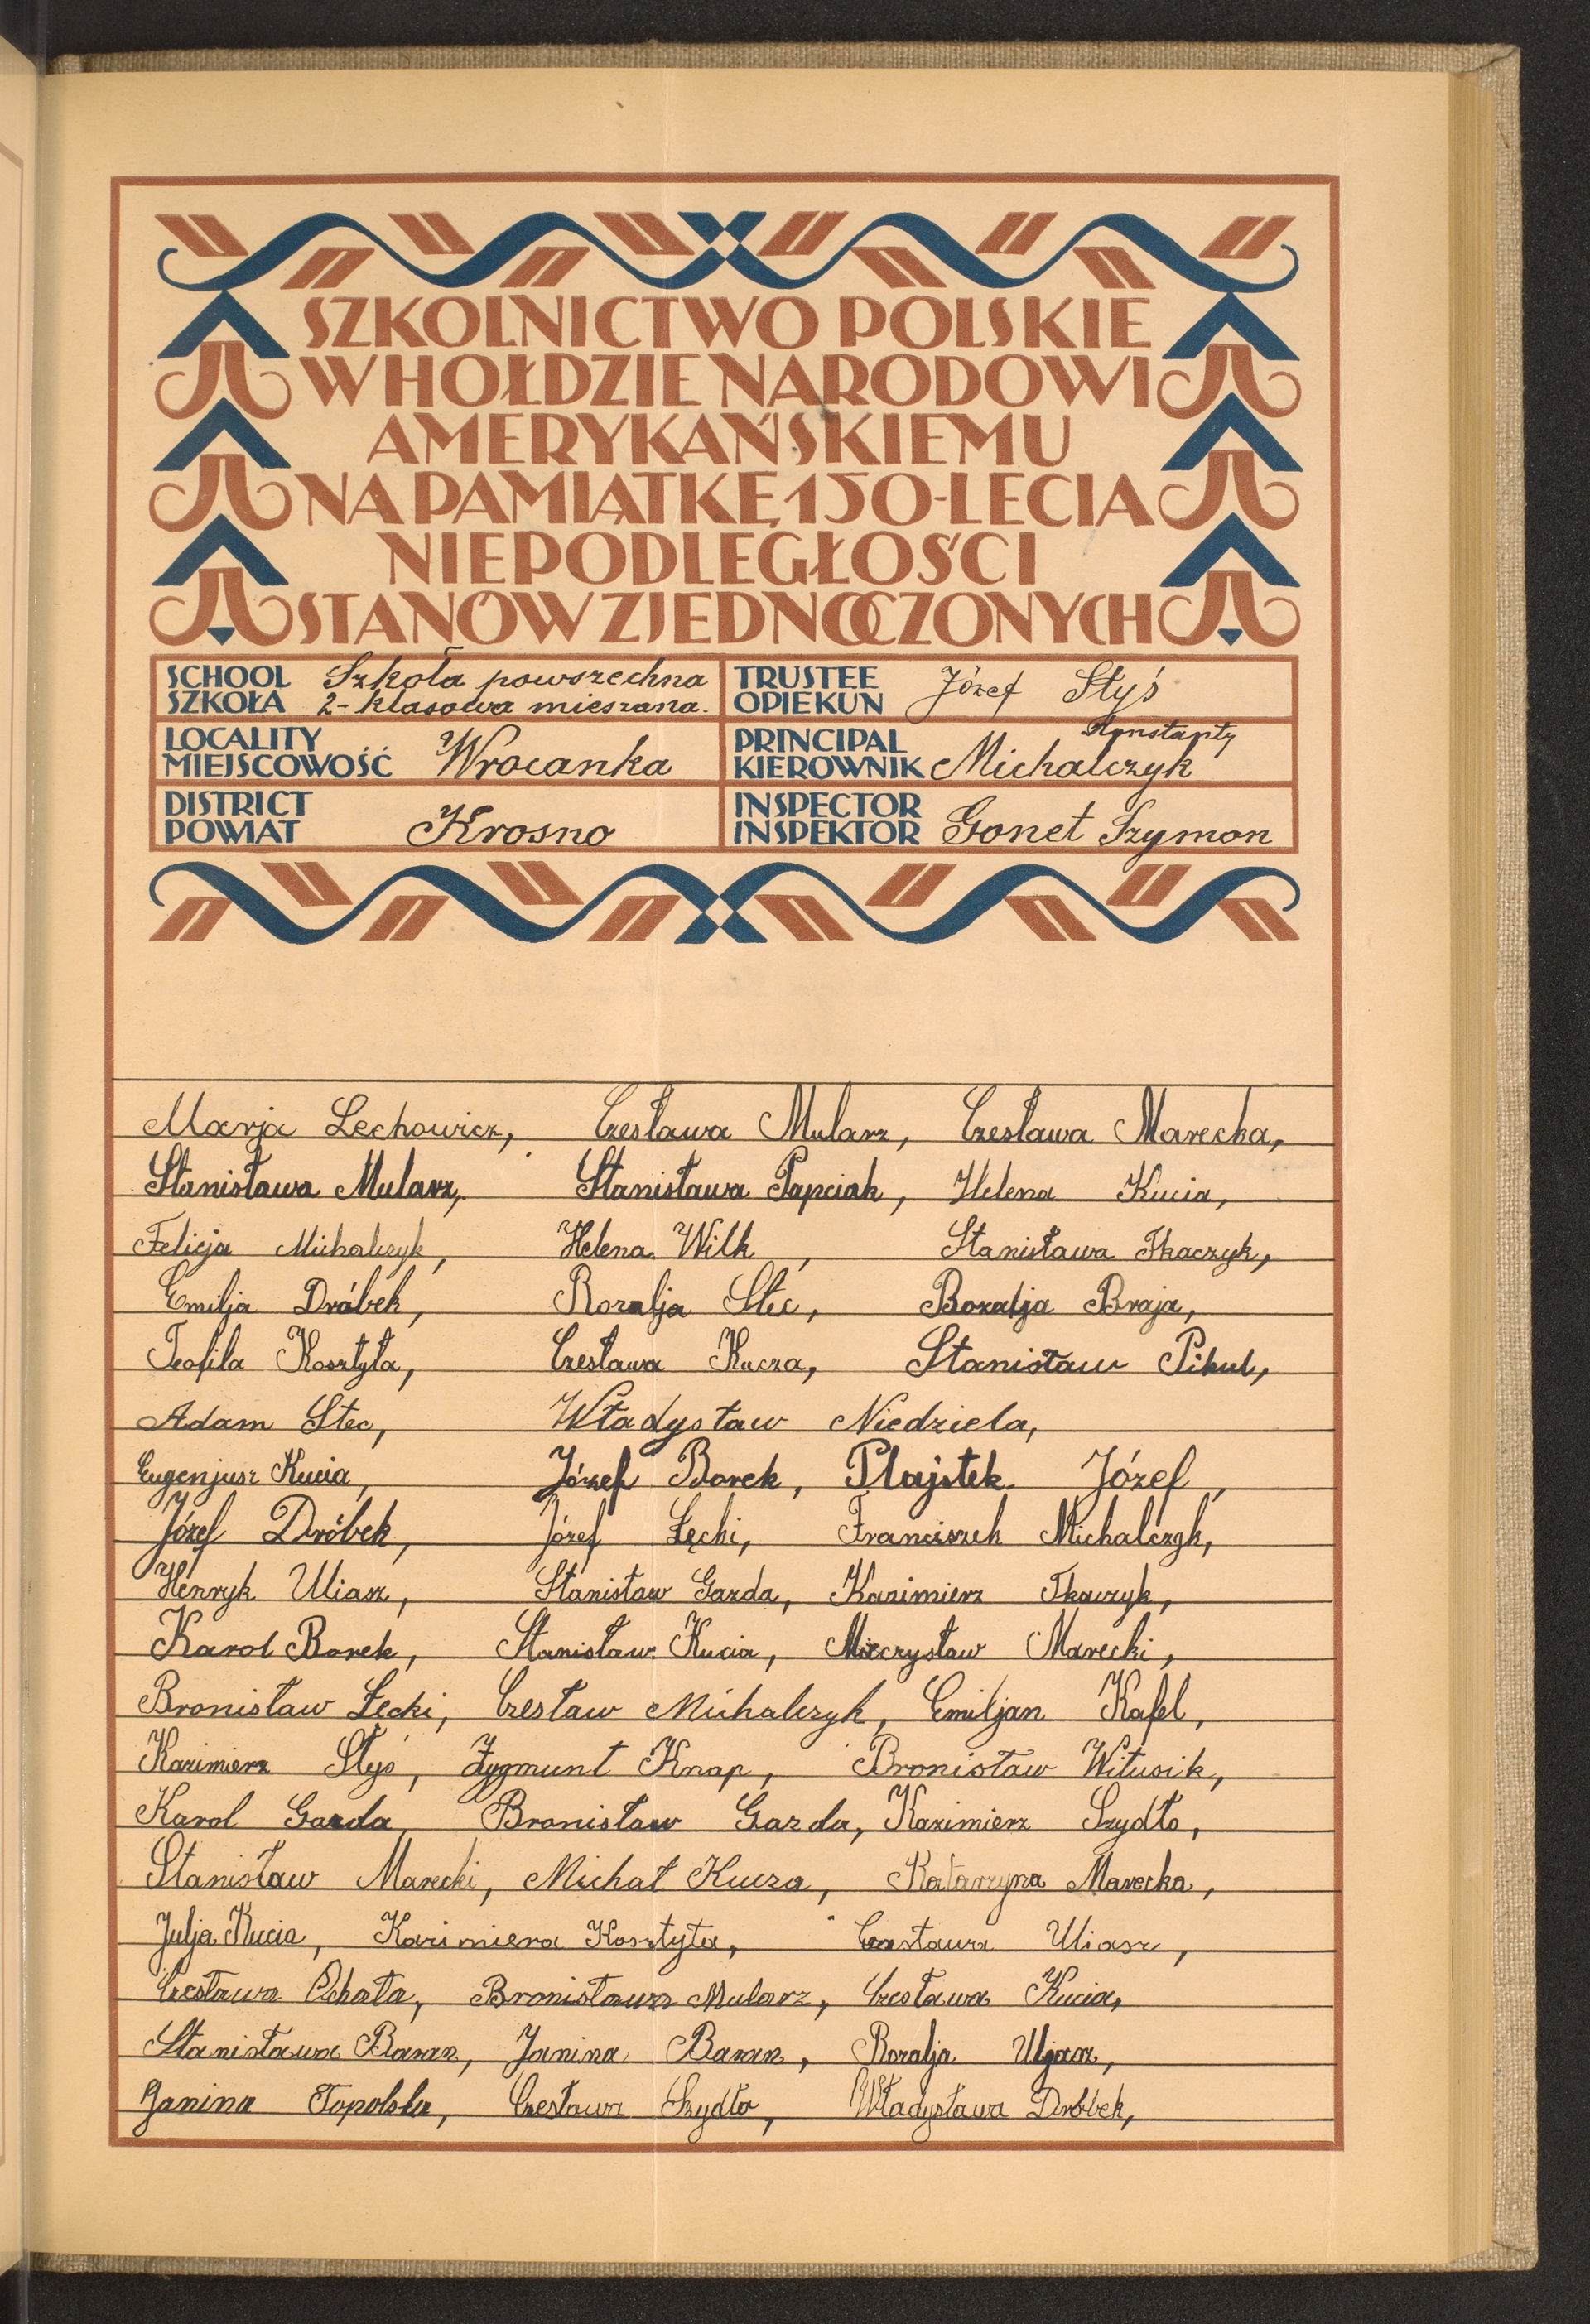 SZKOLNICTWO POLSKIE
W HOŁDZIE NARODOWI
AMERYKAŃSKIEMU
NA PAMIĄTKĘ 150-LECIA
NIEPODLEGŁOŚCI
STANÓW ZJEDNOCZONYCH
SCHOOL SZKOŁA Szkoła powszechna 2-klasowa mieszana.
TRUSTEE OPIEKUN Józef Styś
LOCALITY MIEJSCOWOŚĆ Wrocanka
PRINCIPAL KIEROWNIK Konstanty Michalczyk
DISTRICT POWIAT Krosno
INSPECTOR INSPEKTOR Gonet Szymon
Marja Lechowicz, Czesława Mularz, Czesława Marecka,
Stanisława Mularz, Stanisława Papciak, Helena Kucia,
Felicja Michalczyk, Helena Wilk, Stanisława Tkaczyk,
Emilja Dróbek, Rozalja Stec, Rozalja Braja,
Teofila Kosztyła, Czesława Kucza, Stanisław Pikul,
Adam Stec, Władysław Niedziela,
Eugenjusz Kucia, Józef Borek, Plajstek Józef,
Józef Dróbek, Józef Łęcki, Franciszek Michalczyk,
Henryk Uliasz, Stanisław Gazda, Kazimierz Tkaczyk,
Karol Borek, Stanisław Kucia, Mieczysław Marecki,
Bronisław Łęcki, Czesław Michalczyk, Emiljan Kafel,
Kazimierz Styś, Zygmunt Knap, Bronisław Witusik,
Karol Gazda, Bronisław Gazda, Kazimierz Szydło,
Stanisław Marecki, Michał Kucza, Katarzyna Marecka,
Julja Kucia, Kazimiera Kosztyła, Czesława Uliasz,
Czesława Ochała, Bronisława Mularz, Czesława Kucia,
Stanisława Baran, Janina Baran, Rozalja Uljasz,
Janina Topolska, Czesława Szydło, Władysława Dróbek,